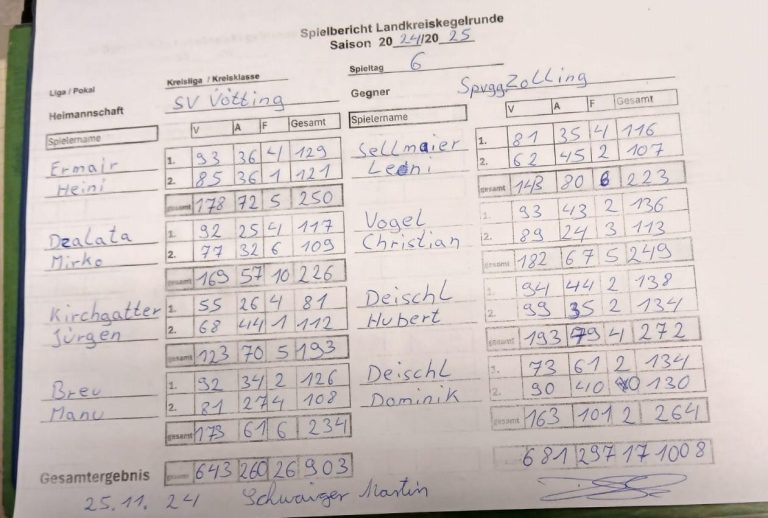 Spielbericht Landkreiskegelrunde
Saison 20 24/20 25
Liga / Pokal Kreisliga / Kreisklasse Spieltag 6
Heimannschaft SV Vötting Gegner Spvgg Zolling
Spielername V A F Gesamt Spielername V A F Gesamt
Ermair 1. 93 36 4 129 Sellmaier 1. 81 35 4 116
Heini 2. 85 36 1 121 Leoni 2. 62 45 2 107
gesamt 178 72 5 250 gesamt 143 80 6 223
Dzalata 1. 92 25 4 117 Vogel 1. 93 43 2 136
Mirko 2. 77 32 6 109 Christian 2. 89 24 3 113
gesamt 169 57 10 226 gesamt 182 67 5 249
Kirchgatter 1. 55 26 4 81 Deischl 1. 94 44 2 138
Jürgen 2. 68 44 1 112 Hubert 2. 99 35 2 134
gesamt 123 70 5 193 gesamt 193 79 4 272
Breu 1. 92 34 2 126 Deischl 1. 73 61 2 134
Manu 2. 81 27 4 108 Dominik 2. 90 40 0 130
gesamt 173 61 6 234 gesamt 163 101 2 264
Gesamtergebnis gesamt 643 260 26 903 gesamt 681 297 17 1008
25.11.24 Schwaiger Martin